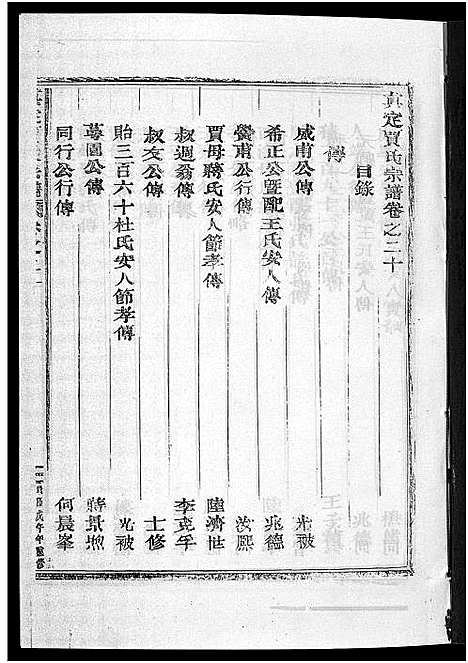 真定賈氏宗譜卷之二十
目錄
傳
威甫公傳 光被
希正公暨配王氏安人傳 兆德
爨甫公行傳 汝熙
賈母蔣氏安人節孝傳 陸濟世
叔週翁傳 李克孚
叔友公傳 士修
貽三百六十杜氏安人節孝傳 光被
蓴園公傳 蔣
同行公行傳 何晨峯